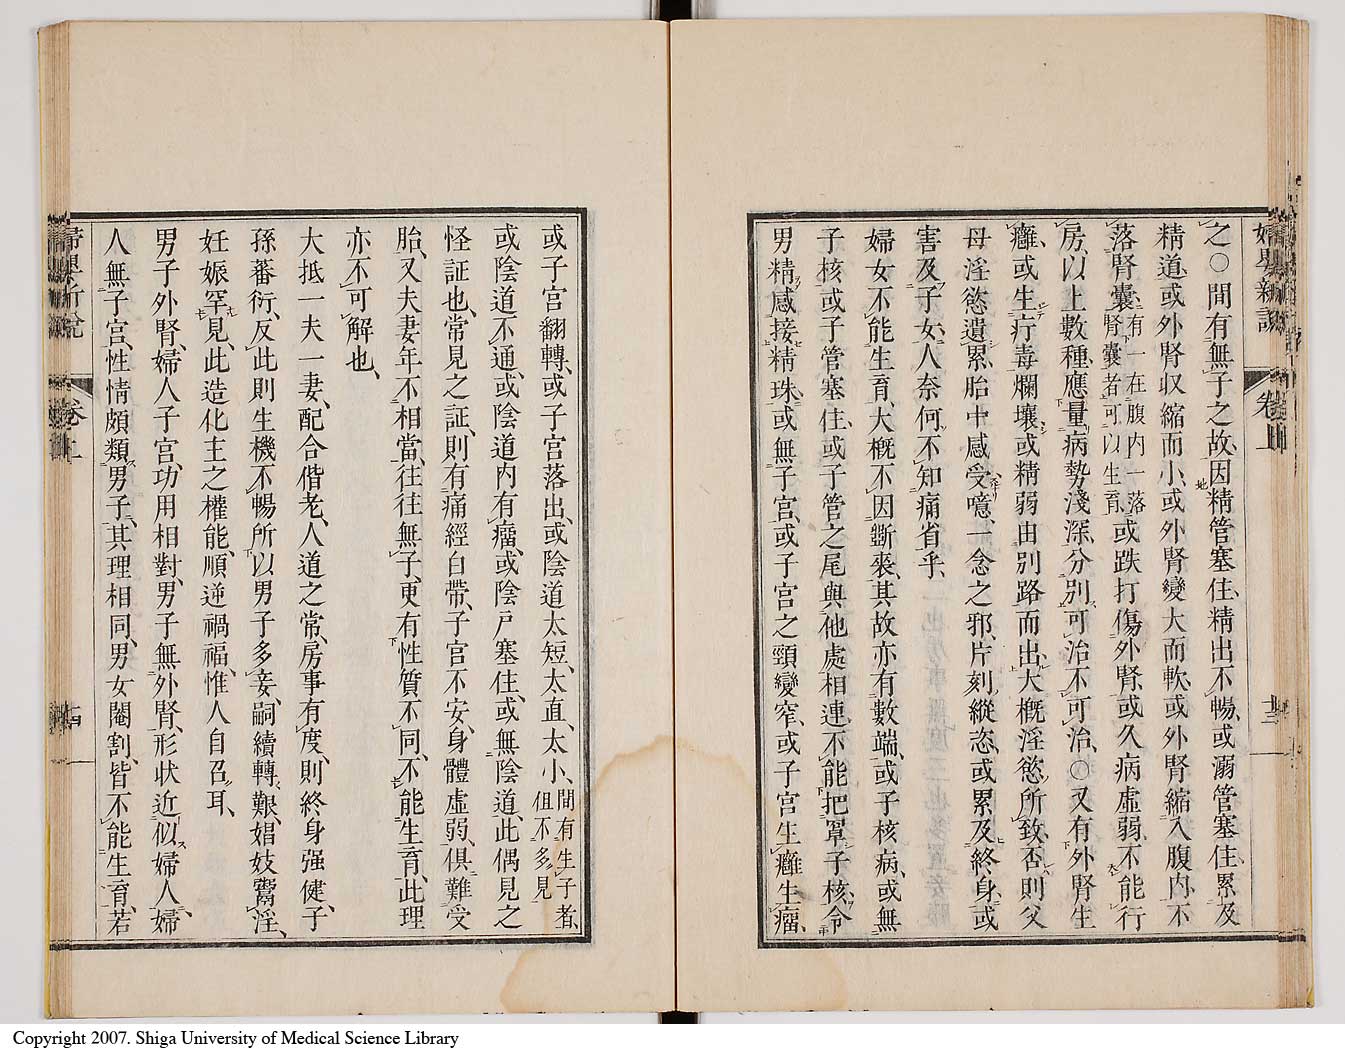 婦嬰新說
卷上
之○間有無子之故、因精管塞住、精出不暢、或溺管塞住、累及
精道、或外腎収縮而小、或外腎變大而軟、或外腎縮入腹內、不
落腎囊、有一在腹內一落腎囊者可以生育、或跌打傷外腎、或久病虛弱、不能行
房、以上數種、應量病勢淺深、分別可治不可治、○又有外腎生
癰、或生疔毒爛壞、或精弱由別路而出、大槪淫慾所致、否則父
母淫慾遺累、胎中感受、噫、一念之邪、片刻縱恣、或累及終身、或
害及子女、人奈何不知痛省乎、
婦女不能生育、大槪不因斷褻、其故亦有數端、或子核病、或無
子核、或子管塞住、或子管之尾與他處相連、不能把罩子核、令
男精感接精珠、或無子宮、或子宮之頸變窄、或子宮生癰生瘤、
或子宮翻轉、或子宮落出、或陰道太短、太直、太小、間有生子者、但不多見
或陰道不通、或陰道內有瘤、或陰戶塞住、或無陰道、此偶見之
怪証也、常見之証、則有痛經白帶、子宮不安、身體虛弱、俱難受
胎、又夫妻年不相當、往往無子、更有性質不同、不能生育、此理
亦不可解也、
大抵一夫一妻、配合偕老、人道之常、房事有度、則終身强健、子
孫蕃衍、反此則生機不暢、所以男子多妾、嗣續轉艱、娼妓鬻淫、
妊娠罕見、此造化主之權能、順逆禍福、惟人自召耳、
男子外腎、婦人子宮、功用相對、男子無外腎、形状近似婦人、婦
人無子宮、性情頗類男子、其理相同、男女閹割、皆不能生育、若
婦嬰新說
卷上
Copyright 2007. Shiga University of Medical Science Library